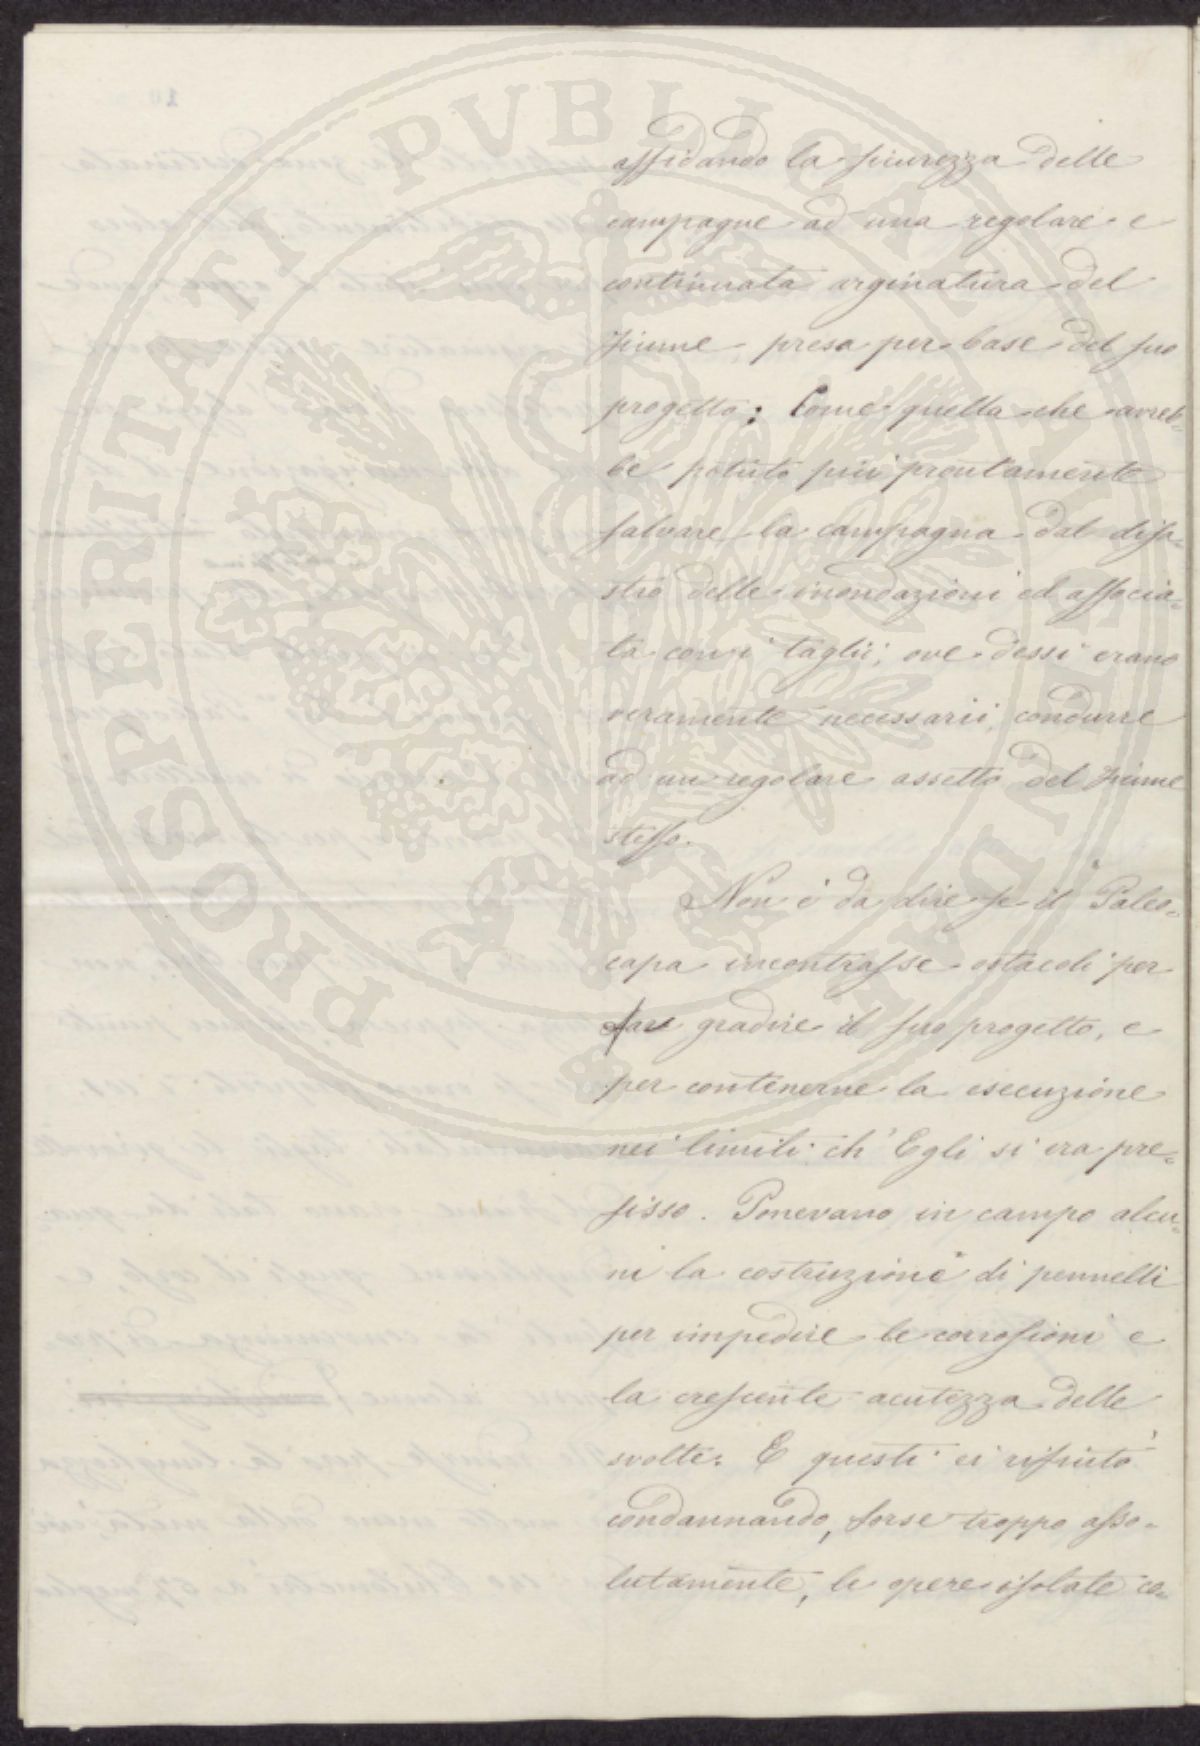 affidando la sicurezza delle
campagne ad una regolare e
continuata arginatura del
Fiume presa per base del suo
progetto; Come quella che avreb=
be potuto più prontamente
salvare la campagna dal disa=
stro delle inondazioni ed associa=
ta con i taglii, ove dessi erano
veramente necessarii, condurre
ad un regolare assetto del Fiume
stesso.
Non è da dire se il Paleo=
capa incontrasse ostacoli per
fare gradire il suo progetto, e
per contenerne la esecuzione
nei limiti ch' Egli si era pre=
fisso. Ponevano in campo alcu=
ni la costruzione di pennelli
per impedire le corrosioni e
la crescente acutezza delle
svolte: E questi ei rifiutò
condannando, forse troppo asso=
lutamente, le opere isolate co=
PROSPERITATI PVBLICAE AVGENDAE